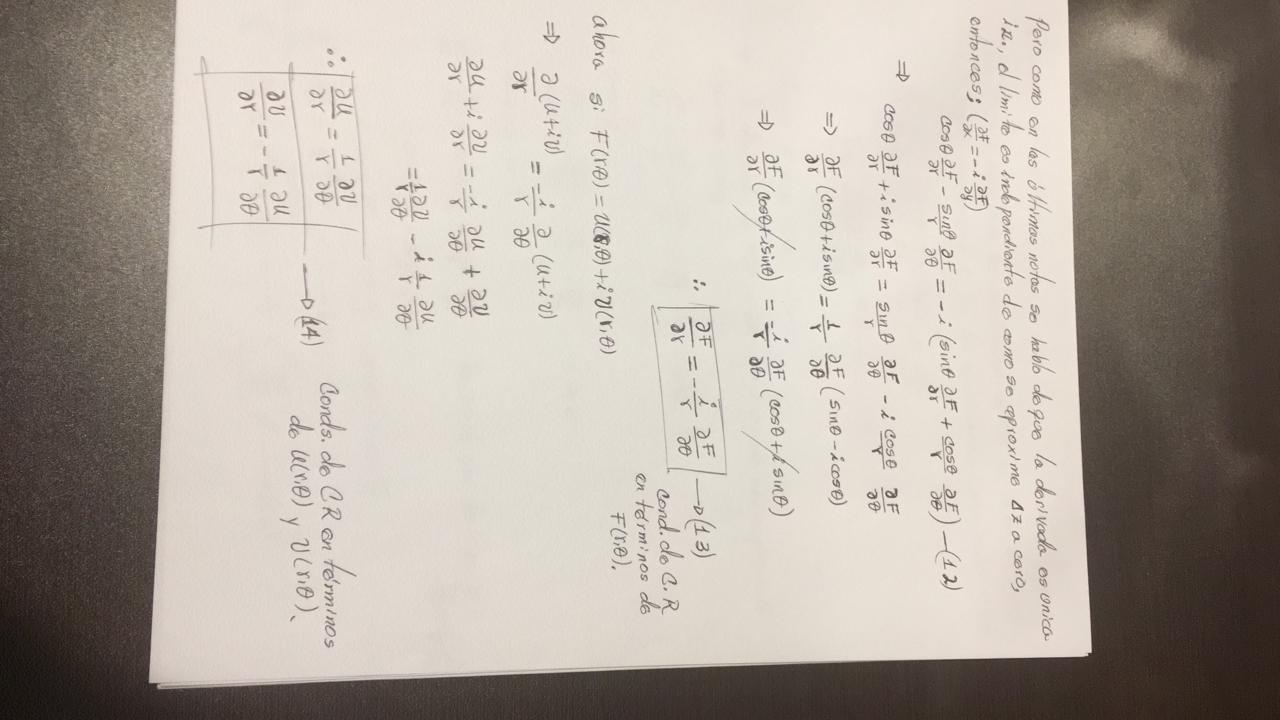 Pero como en las últimas notas se hablo de que la derivada es unica
i.e., el limite es independiente de como se aproxime Δz a cero,
entonces; (∂F/∂x = -i ∂F/∂y)
cosθ ∂F/∂r - sinθ/r ∂F/∂θ = -i (sinθ ∂F/∂r + cosθ/r ∂F/∂θ) —(12)
⇒ cosθ ∂F/∂r + i sinθ ∂F/∂r = sinθ/r ∂F/∂θ - i cosθ/r ∂F/∂θ
⇒ ∂F/∂r (cosθ + i sinθ) = 1/r ∂F/∂θ (sinθ - i cosθ)
⇒ ∂F/∂r (cosθ + i sinθ) = -i/r ∂F/∂θ (cosθ + i sinθ)
∴ ∂F/∂r = -i/r ∂F/∂θ → (13)
cond. de C.R
en términos de
F(r,θ).
ahora si F(r,θ) = u(r,θ) + i v(r,θ)
⇒ ∂(u+iv)/∂r = -i/r ∂/∂θ (u+iv)
∂u/∂r + i ∂v/∂r = -i/r ∂u/∂θ + ∂v/∂θ
= 1/r ∂v/∂θ - i 1/r ∂u/∂θ
∴ ∂u/∂r = 1/r ∂v/∂θ
∂v/∂r = -1/r ∂u/∂θ → (14)
Conds. de CR en términos
de u(r,θ) y v(r,θ).